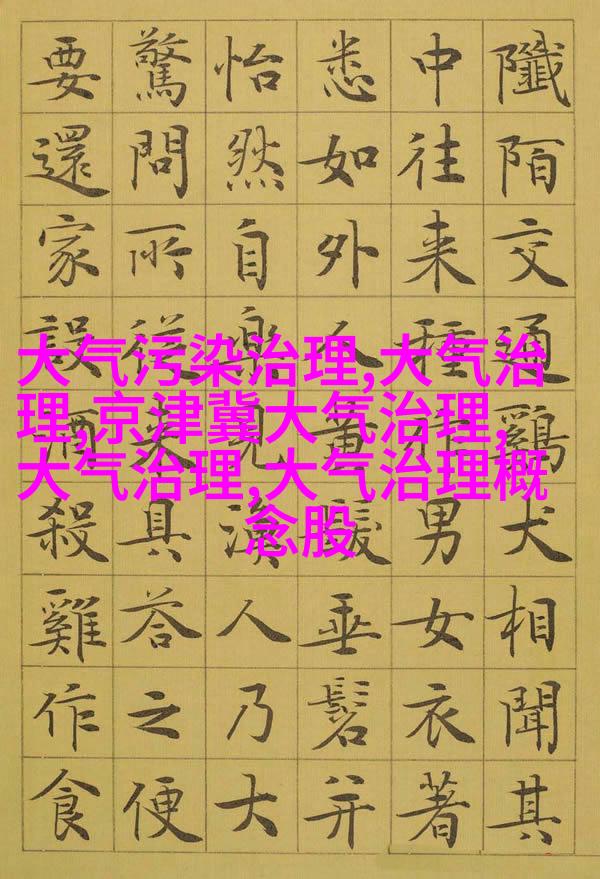 大气污染治理,大气治
理,京津冀大气治理,
大气治理,大气治理概
念股
陌交通鷄犬相聞其
中往来種作男女衣著
悉如外人黄髮垂髫并
怡然自樂見漁人乃大
驚問所從来具答之便
要還家設酒殺雞作食